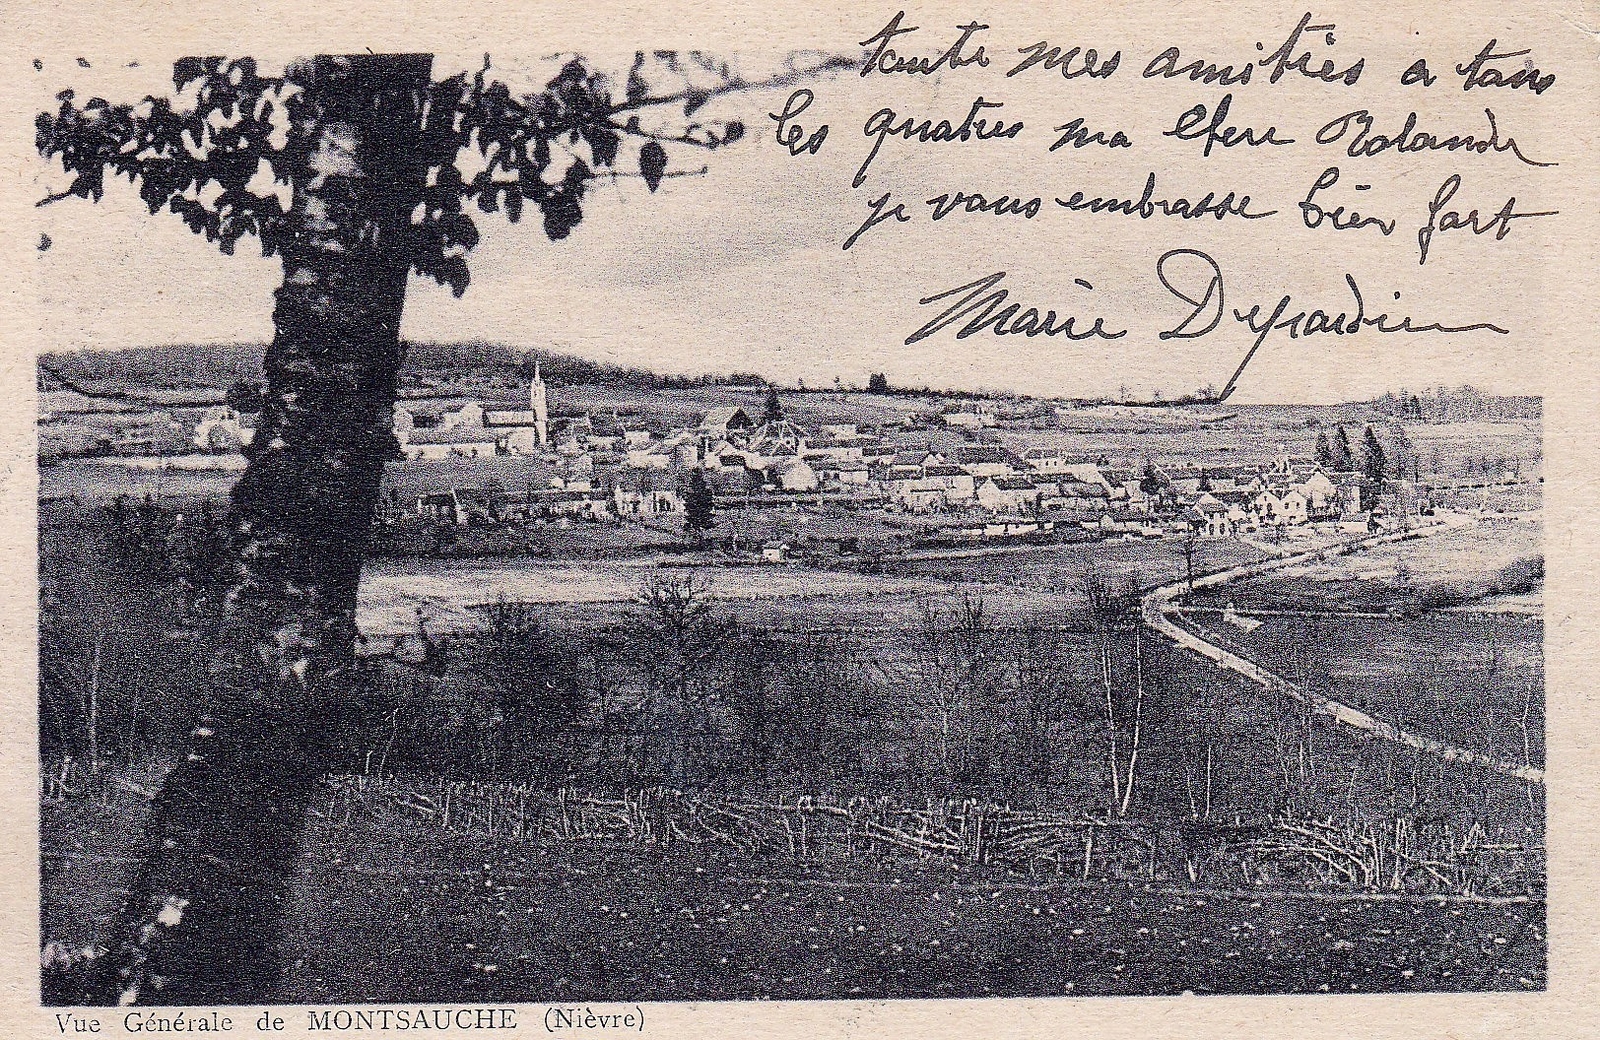 toute mes amitiès a tous
les quatres ma chere Rolande
je vous embrasse bien fort
Marie Dejardin
Vue Générale de MONTSAUCHE (Nièvre)